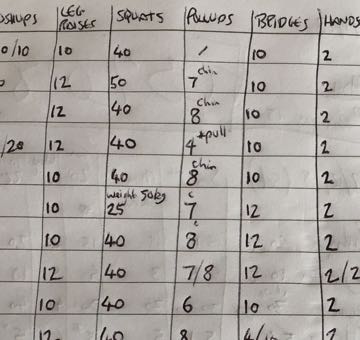 DSHUPS LEG RAISES SQUATS PULLUPS BRIDGES HANDS
0/10 10 40 / 10 2
12 50 7 chin 10 2
12 40 8 chin 10 2
/20 12 40 4 *pull 10 2
10 40 8 chin 10 2
10 weight 50kg 25 7 c 12 2
10 40 8 c 12 2
12 40 7/8 12 2/2
10 40 6 10 2
12 40 8